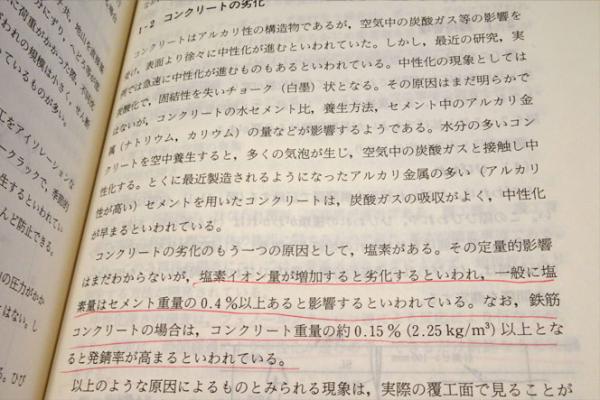 1-2 コンクリートの劣化
コンクリートはアルカリ性の構造物であるが，空気中の炭酸ガス等の影響を
受け，表面より徐々に中性化が進むといわれていた。しかし，最近の研究，実
では急速に中性化が進むものもあるといわれている。中性化の現象としては
炭酸化で，固結性を失いチョーク（白墨）状となる。その原因はまだ明らかで
はないが，コンクリートの水セメント比，養生方法，セメント中のアルカリ金
属（ナトリウム，カリウム）の量などが影響するようである。水分の多いコン
クリートを空中養生すると，多くの気泡が生じ，空気中の炭酸ガスと接触し中
性化する。とくに最近製造されるようになったアルカリ金属の多い（アルカリ
性が高い）セメントを用いたコンクリートは，炭酸ガスの吸収がよく，中性化
が早まるといわれている。
コンクリートの劣化のもう一つの原因として，塩素がある。その定量的影響
はまだわからないが，塩素イオン量が増加すると劣化するといわれ，一般に塩
素量はセメント重量の0.4％以上あると影響するといわれている。なお，鉄筋
コンクリートの場合は，コンクリート重量の約0.15％（2.25 kg/m³）以上とな
ると発錆率が高まるといわれている。
以上のような原因によるものとみられる現象は，実際の覆工面で見ることが
地山を直接
に荷重がかかった際，不同沈
の規模は小さく，せん断
ているものが多い。
工をアイソレーションな
ークラックで，季節的
生するといわれてい
んど防止できる。
の圧力がかか
とはない。し
る。ひび